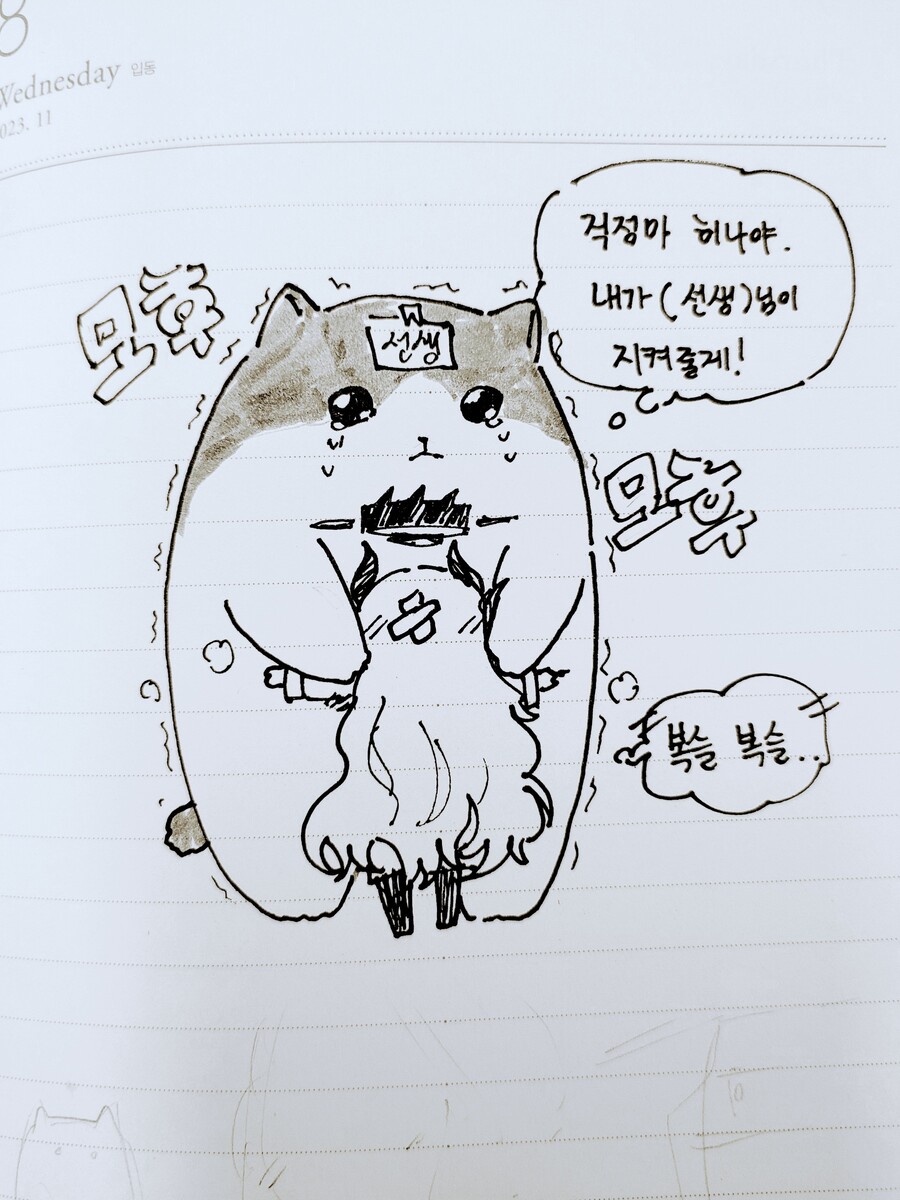 8
Wednesday 입동
2023. 11
걱정마 히나야.
내가 (선생)님이
지켜줄게!
모흉
선생
모흉
복슬 복슬..